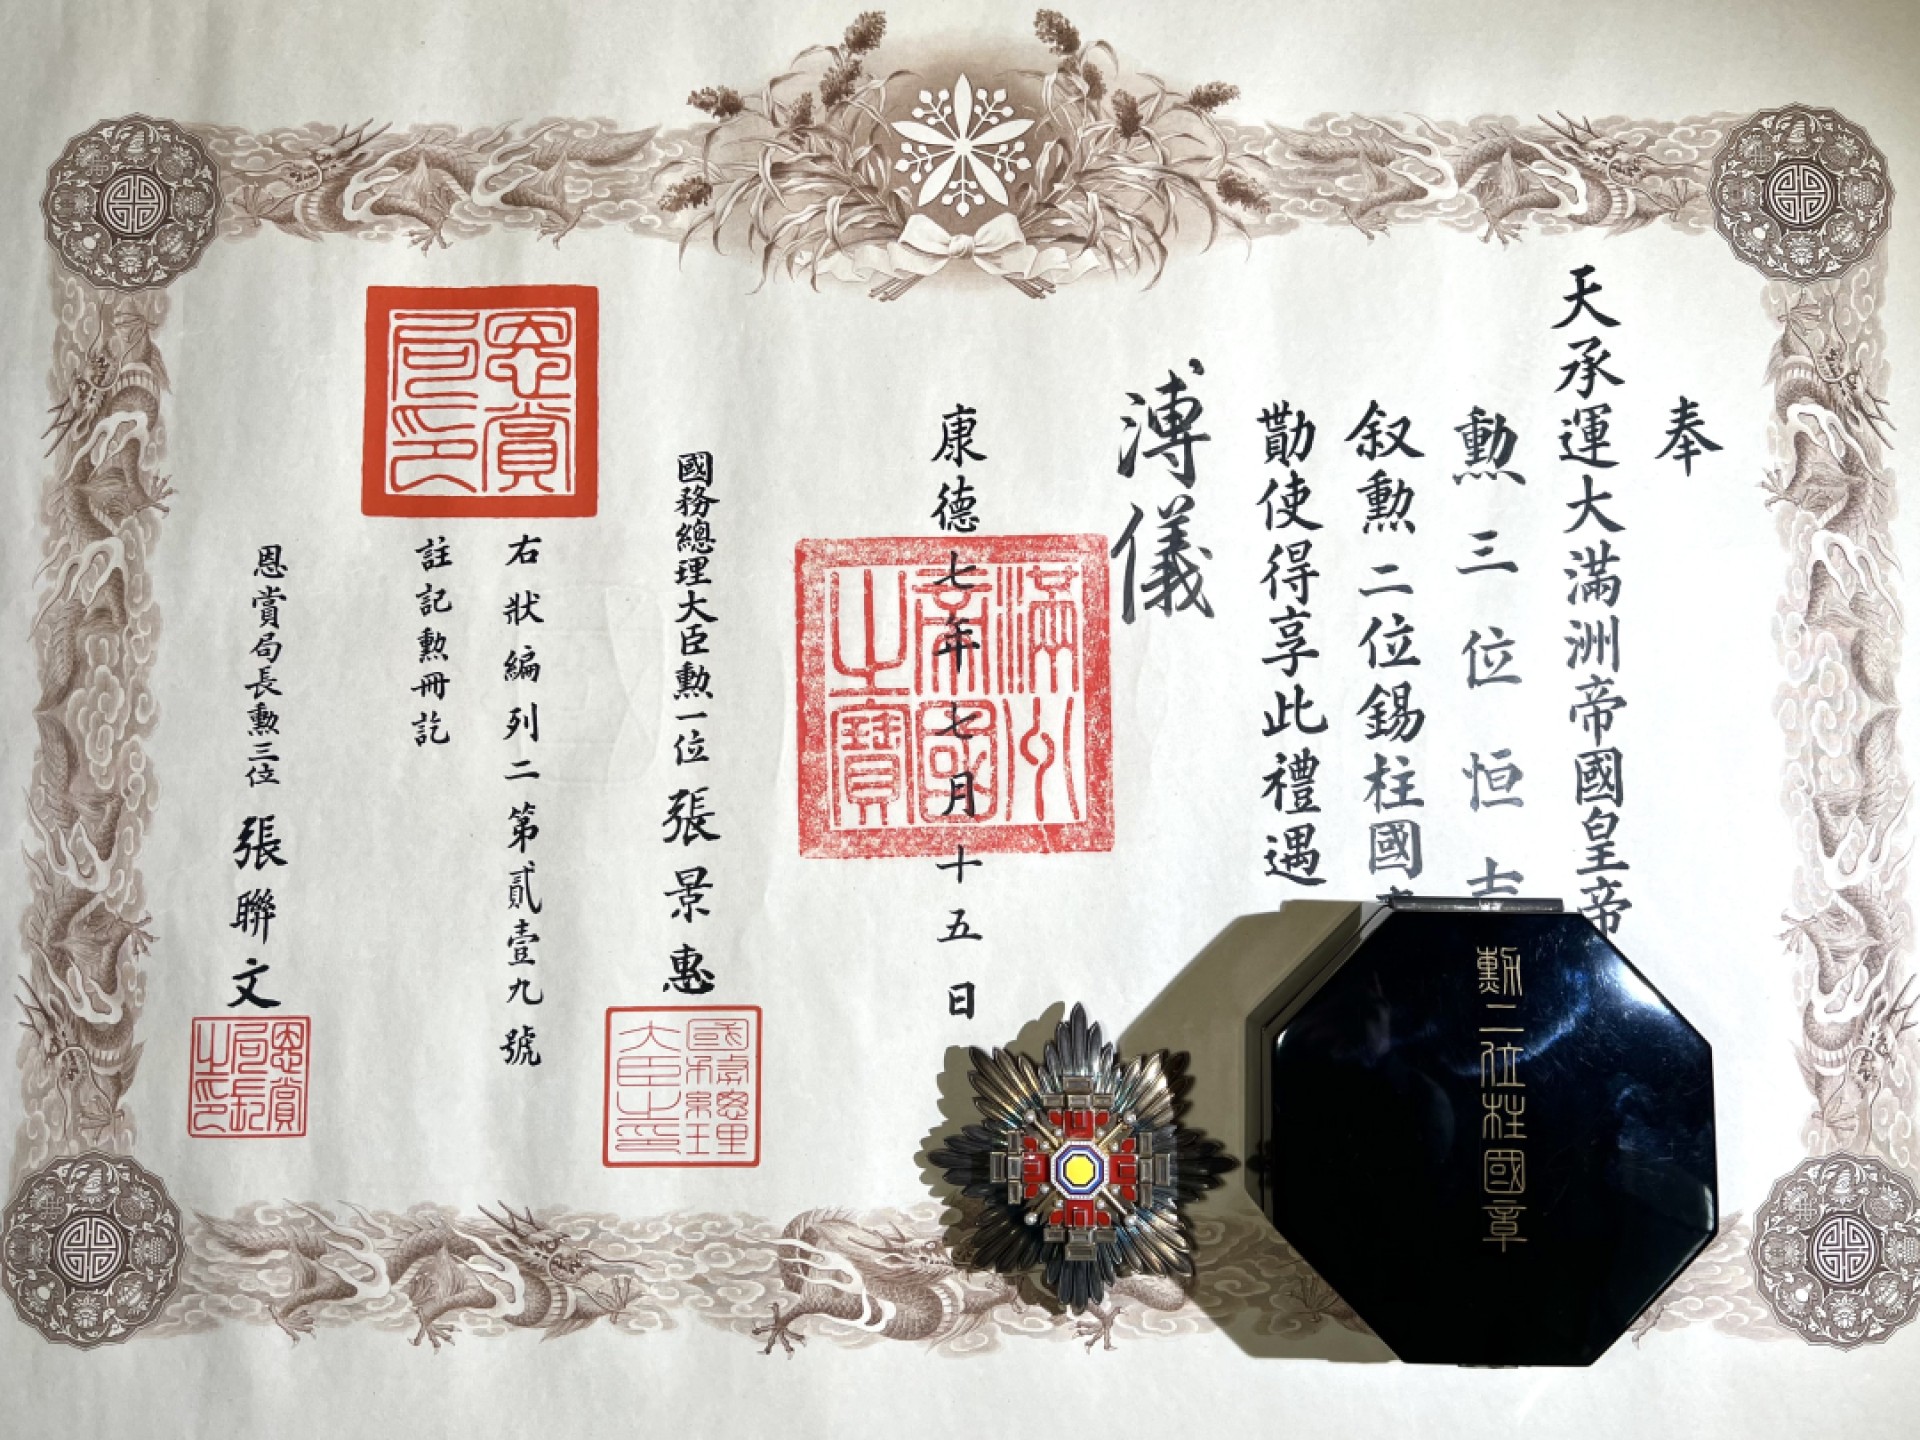 奉
天承運大滿洲帝國皇帝
勲三位恒吉
叙勲二位錫柱國
勳使得享此禮遇
溥儀
康德七年七月十五日
滿洲帝國之寶
國務總理大臣勲一位 張景惠
國務總理大臣之印
右狀編列二第貳壹九號
註記勲冊訖
恩賞局印
恩賞局長勲三位 張聯文
恩賞局長之印
勲二位柱國章